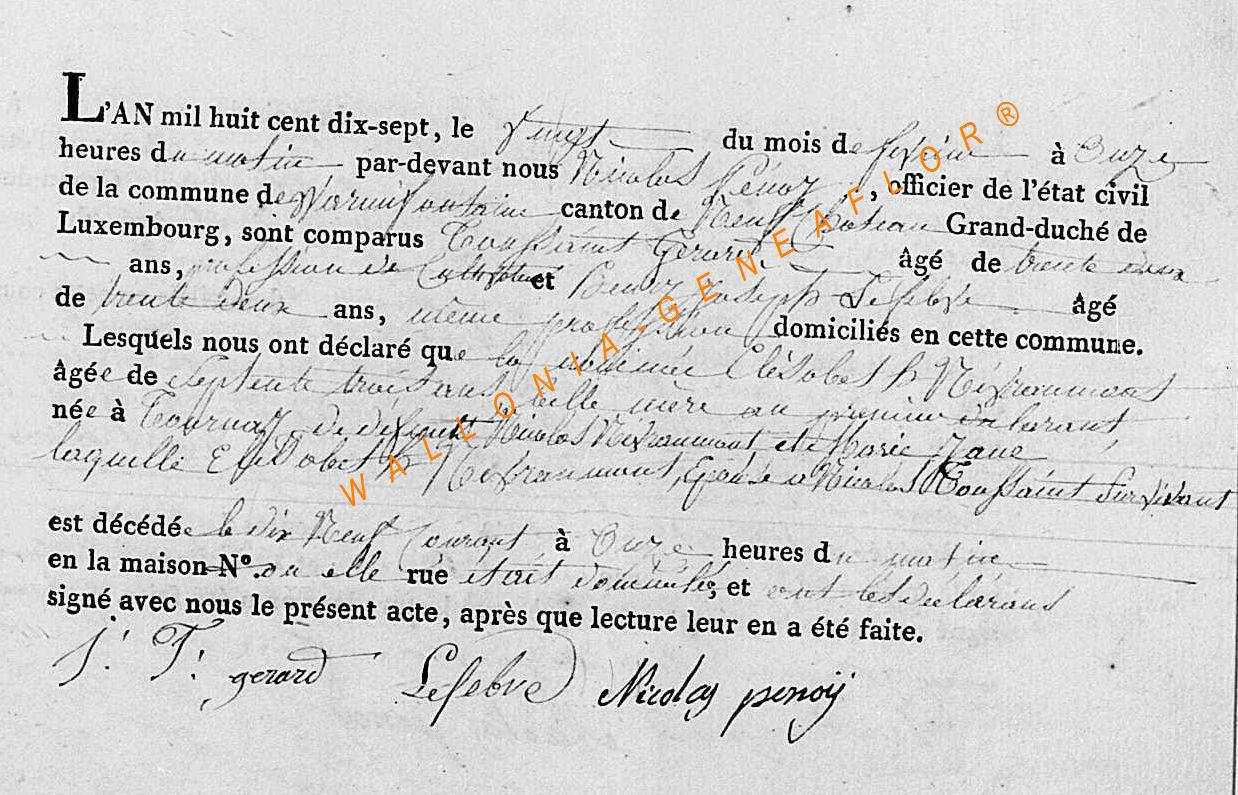 L'AN mil huit cent dix-sept, le vingt du mois de février à onze
heures du matin par-devant nous Nicolas Penoy, officier de l'état civil
de la commune de Warmifontaine canton de Neufchateau Grand-duché de
Luxembourg, sont comparus Toussaint Gerard âgé de trente deux
ans, profession de Cultivateur et Henry Joseph Lefebve âgé
de trente deux ans, même profession domiciliés en cette commune.
Lesquels nous ont déclaré que la nommée Elésobeth
âgée de septente trois ans belle mère au premier déclarant
née à Tournay de défunt Nicolas et de Marie
laquelle Elisobeth Epouse a Nicolas Toussaint survivant
est décédée le dix Neuf Courant à Onze heures du matin
en la maison N.° ou elle rue était domiciliés et ont les déclarans
signé avec nous le présent acte, après que lecture leur en a été faite.
j: T: gerard Lefebve Nicolas penoÿ
WALLONIA-GENEAFLOR®